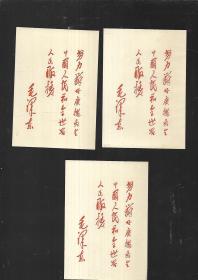 努力办好广播为全
中国人民和全世界
人民服务
毛泽东
努力办好广播为全
中国人民和全世界
人民服务
毛泽东
努力办好广播为全
中国人民和全世界
人民服务
毛泽东